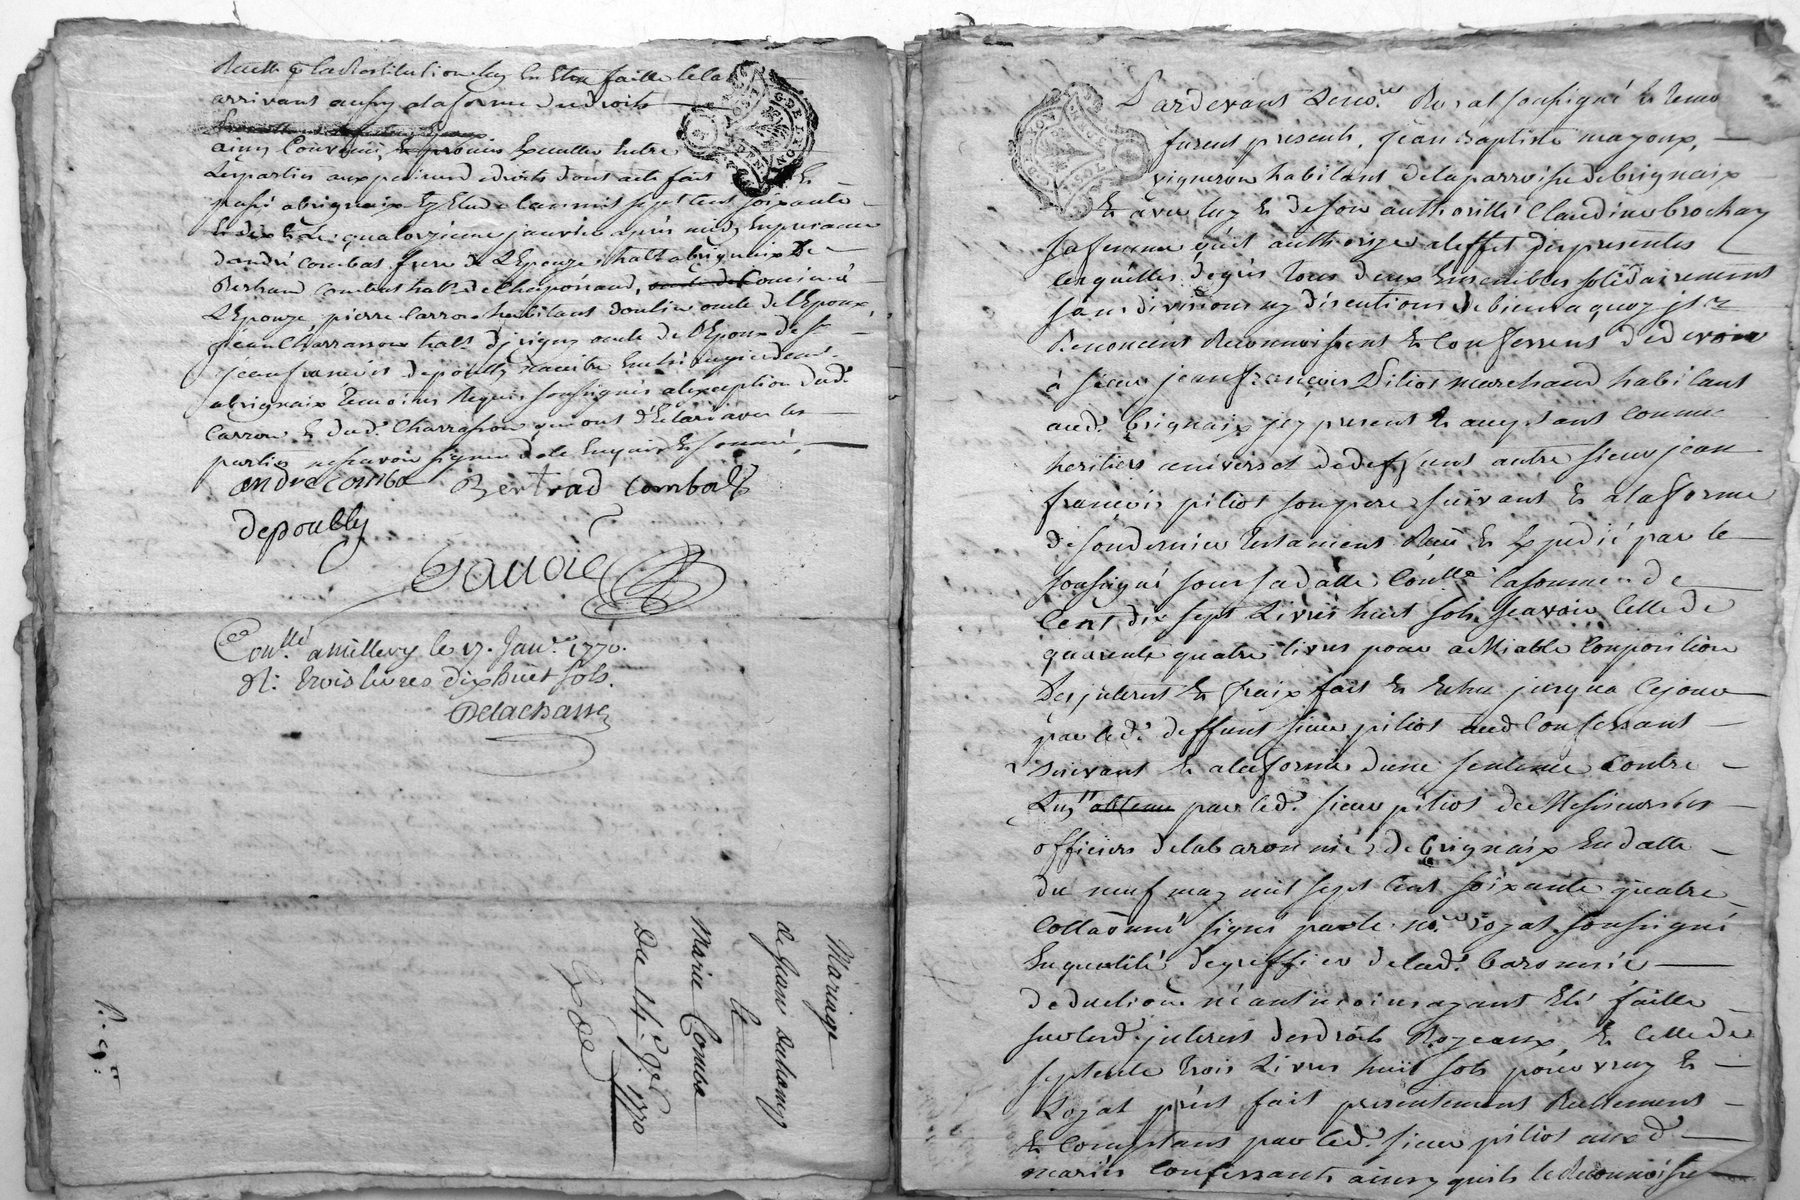 arrivant aussy a la forme du droits
ainsy Convenu, Entre
Les parties aux peines de droits dont acte fait Et
passé a brignaix En Etude l'an mil sept cent soixante
Et dix & Le quatorzieme janvier après midy En presence
d'andré combat frere de L'Epouze habt a brignaix De
Bertrand combat habt de Chaponnaud,
L'Epouze pierre Carron habitant d'oulin oncle de l'Epoux
jean Charrasson habt d'irigny oncle de l'Epoux De Sr
jean francois depoully
a brignaix temoins Requis soussignés a l'exception dud.
Carron & dud. Charrasson qui ont déclaré avec les
parties ne sçavoir signer de ce Enquis Et sommé,
andre comba Bertrad combat
depoully
Conllé a millery le 17. Janer 1770.
R: trois livres dix huit sols.
Delachasse
Mariage
de Jean
&
Marie Comba
Du 14e jer 1770
Expdé
Pardevant Le nore Royal soussigné &
furent presents, jean Baptiste mayoux,
vigneron habitant de la parroisse de brignaix
Et avec luy & de son authorité Claudine brochay
sa femme qu'il authorize a l'effet des presentes
lesquelles de gré tous deux Ensembles solidairement
sans division ny discution de biens a quoy ils
Renoncent Reconnoissent & Confessent de devoir
à sieur jean françois Pitiot marchand habitant
aud. brignaix icy present & acceptant comme
heritier universel de deffunt autre sieur jean
francois pitiot son pere suivant & a la forme
de son dernier testament Reçu & Expedié par le
soussigné sous sa datte Conllé la somme de
Cent dix sept Livres huit sols sçavoir Celle de
quarante quatre livres pour amiable composition
Des interest & fraix fait & Entre jusqua ce jour
par led. deffunt sieur pitiot aud Confessant
suivant & a la forme d'une sentence contre
Luy obtenu par led. sieur pitiot de Messieurs les
officiers de la baronnie de brignaix En datte
du neuf may mil sept cent soixante quatre
Collationné signé par le nore Royal soussigné
En qualité de greffier de lad. baronnie
deduction néantmoins ayant Eté faitte
sur led. interest des droits Royeaux, & Celle de
septente trois Livres huit sols pour vray &
Loyal prest fait presentement Reellement
& Comptant par led. sieur pitiot auxd
mariés Confessants ainsy qu'ils le Reconnoisse